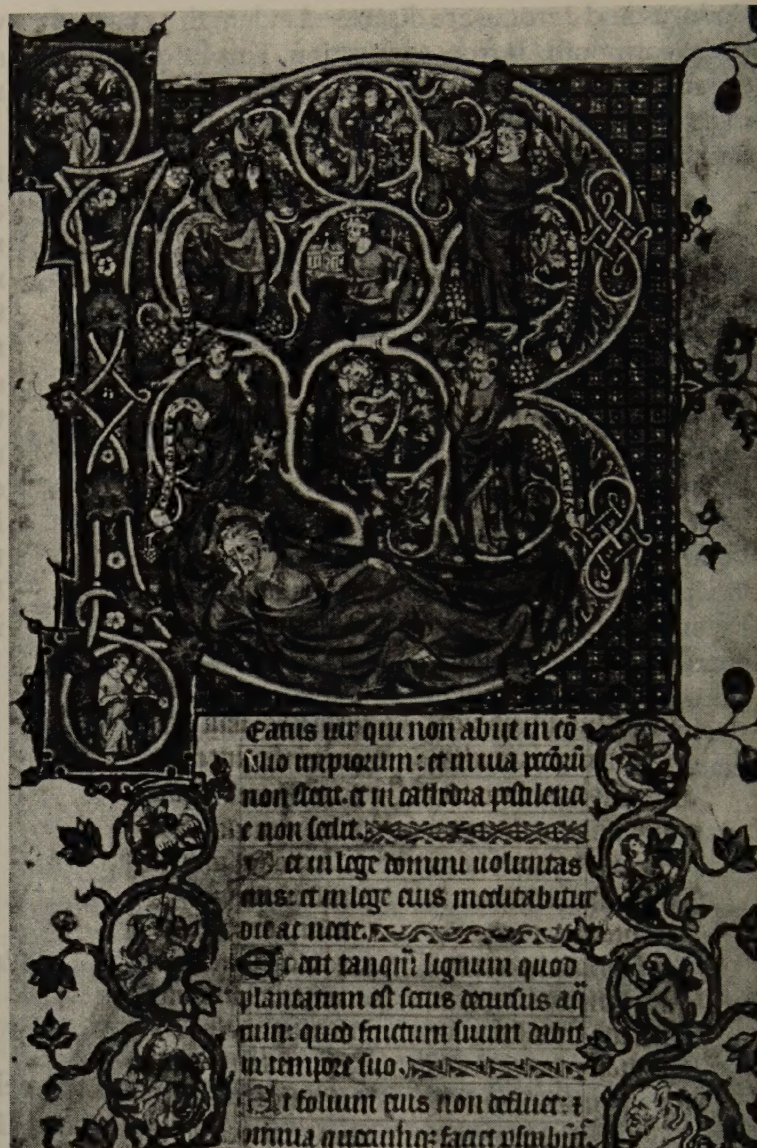 B
Eatus uir qui non abijt in cõ
silio impiorum : et in uia pccõrũ
non stetit. et in cathedra pestilenci
e non sedit.
et in lege domini uoluntas
eius : et in lege eius meditabitur
die ac nocte.
Et erit tanqũ lignum quod
plantatum est secus decursus aq̃
rum : quod fructum suum dabit
in tempore suo.
Et folium eius non defluet : ⁊
omnia quecumq; faciet